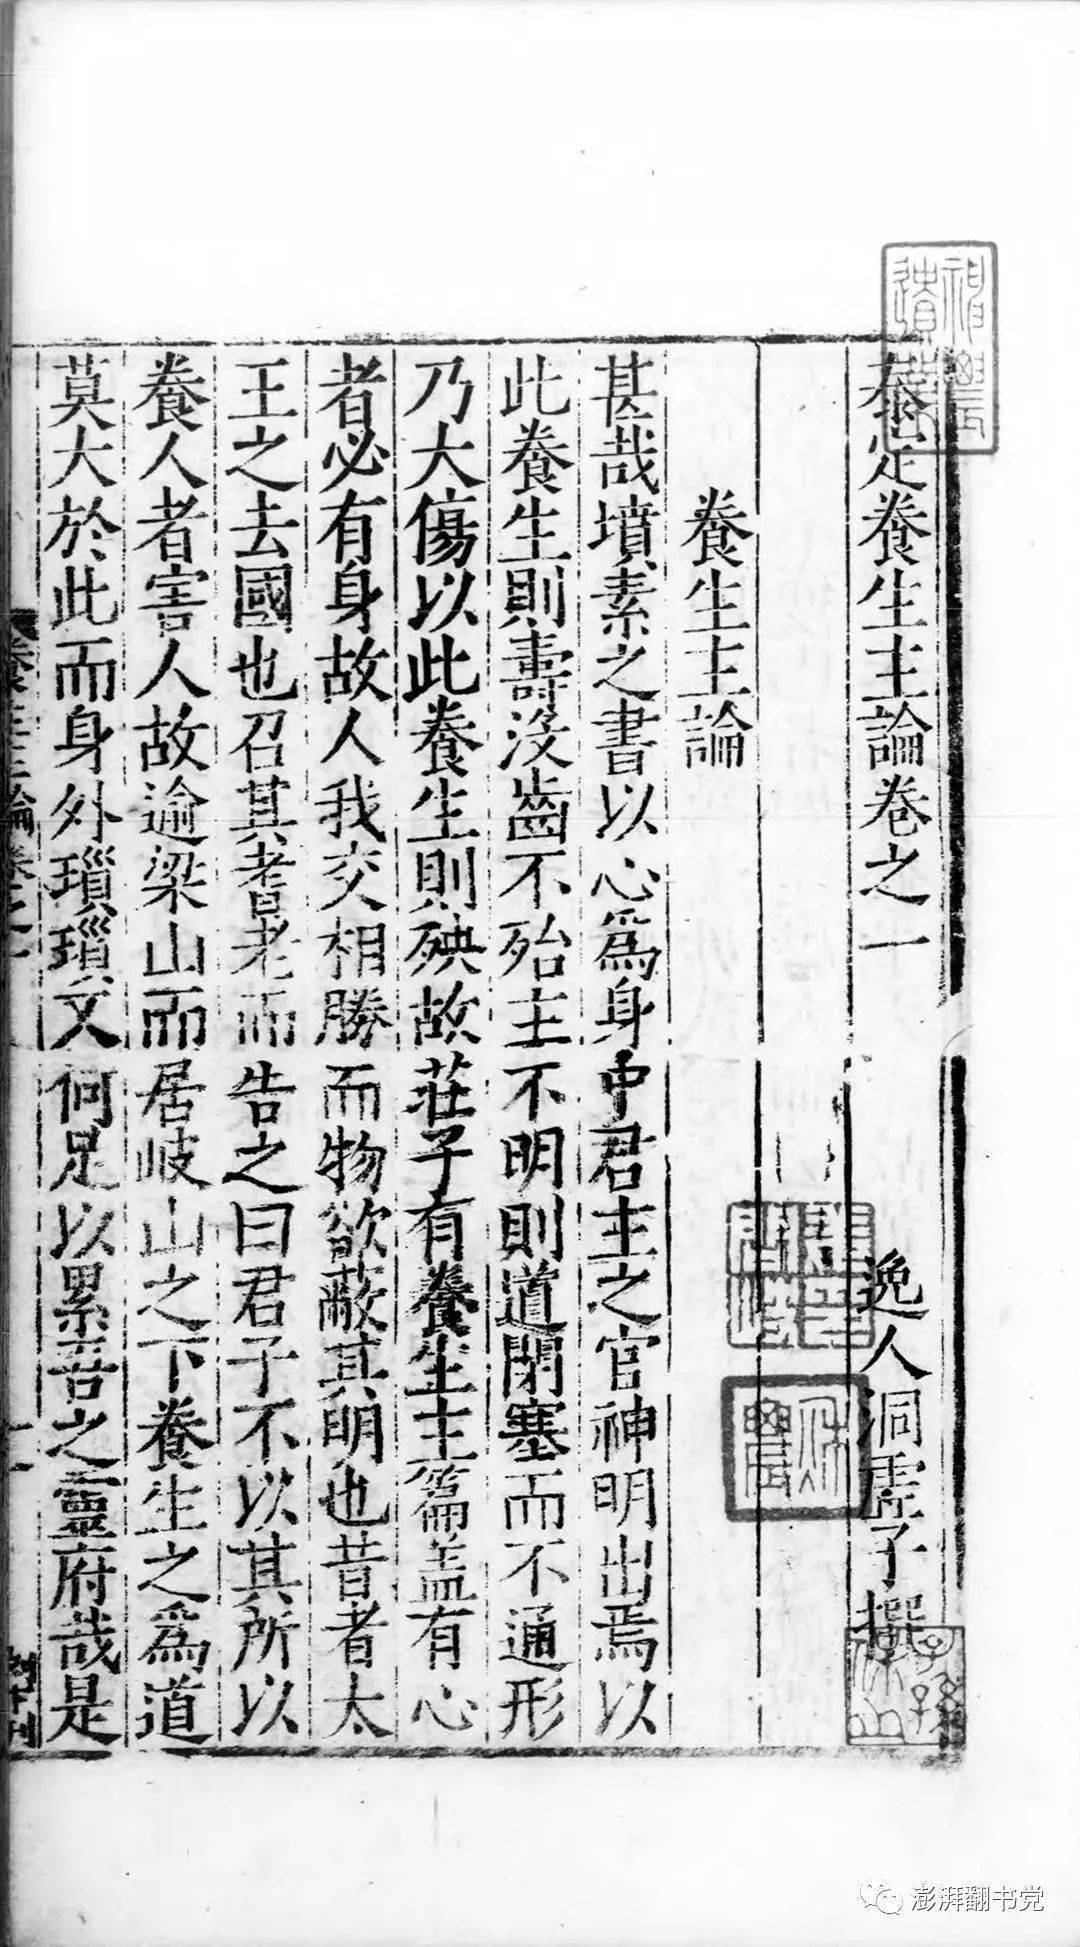 泰定養生主論卷之一
逸人洞虛子撰
養生主論
甚哉墳素之書以心爲身中君主之官神明出焉以
此養生則壽沒齒不殆主不明則道閉塞而不通形
乃大傷以此養生則殃故莊子有養生主篇盖有心
者必有身故人我交相勝而物欲蔽其明也昔者太
王之去國也召其耆老而告之曰君子不以其所以
養人者害人故逾梁山而居岐山之下養生之爲道
莫大於此而身外瑣瑣又何足以累吾之靈府哉是
澎湃翻书党